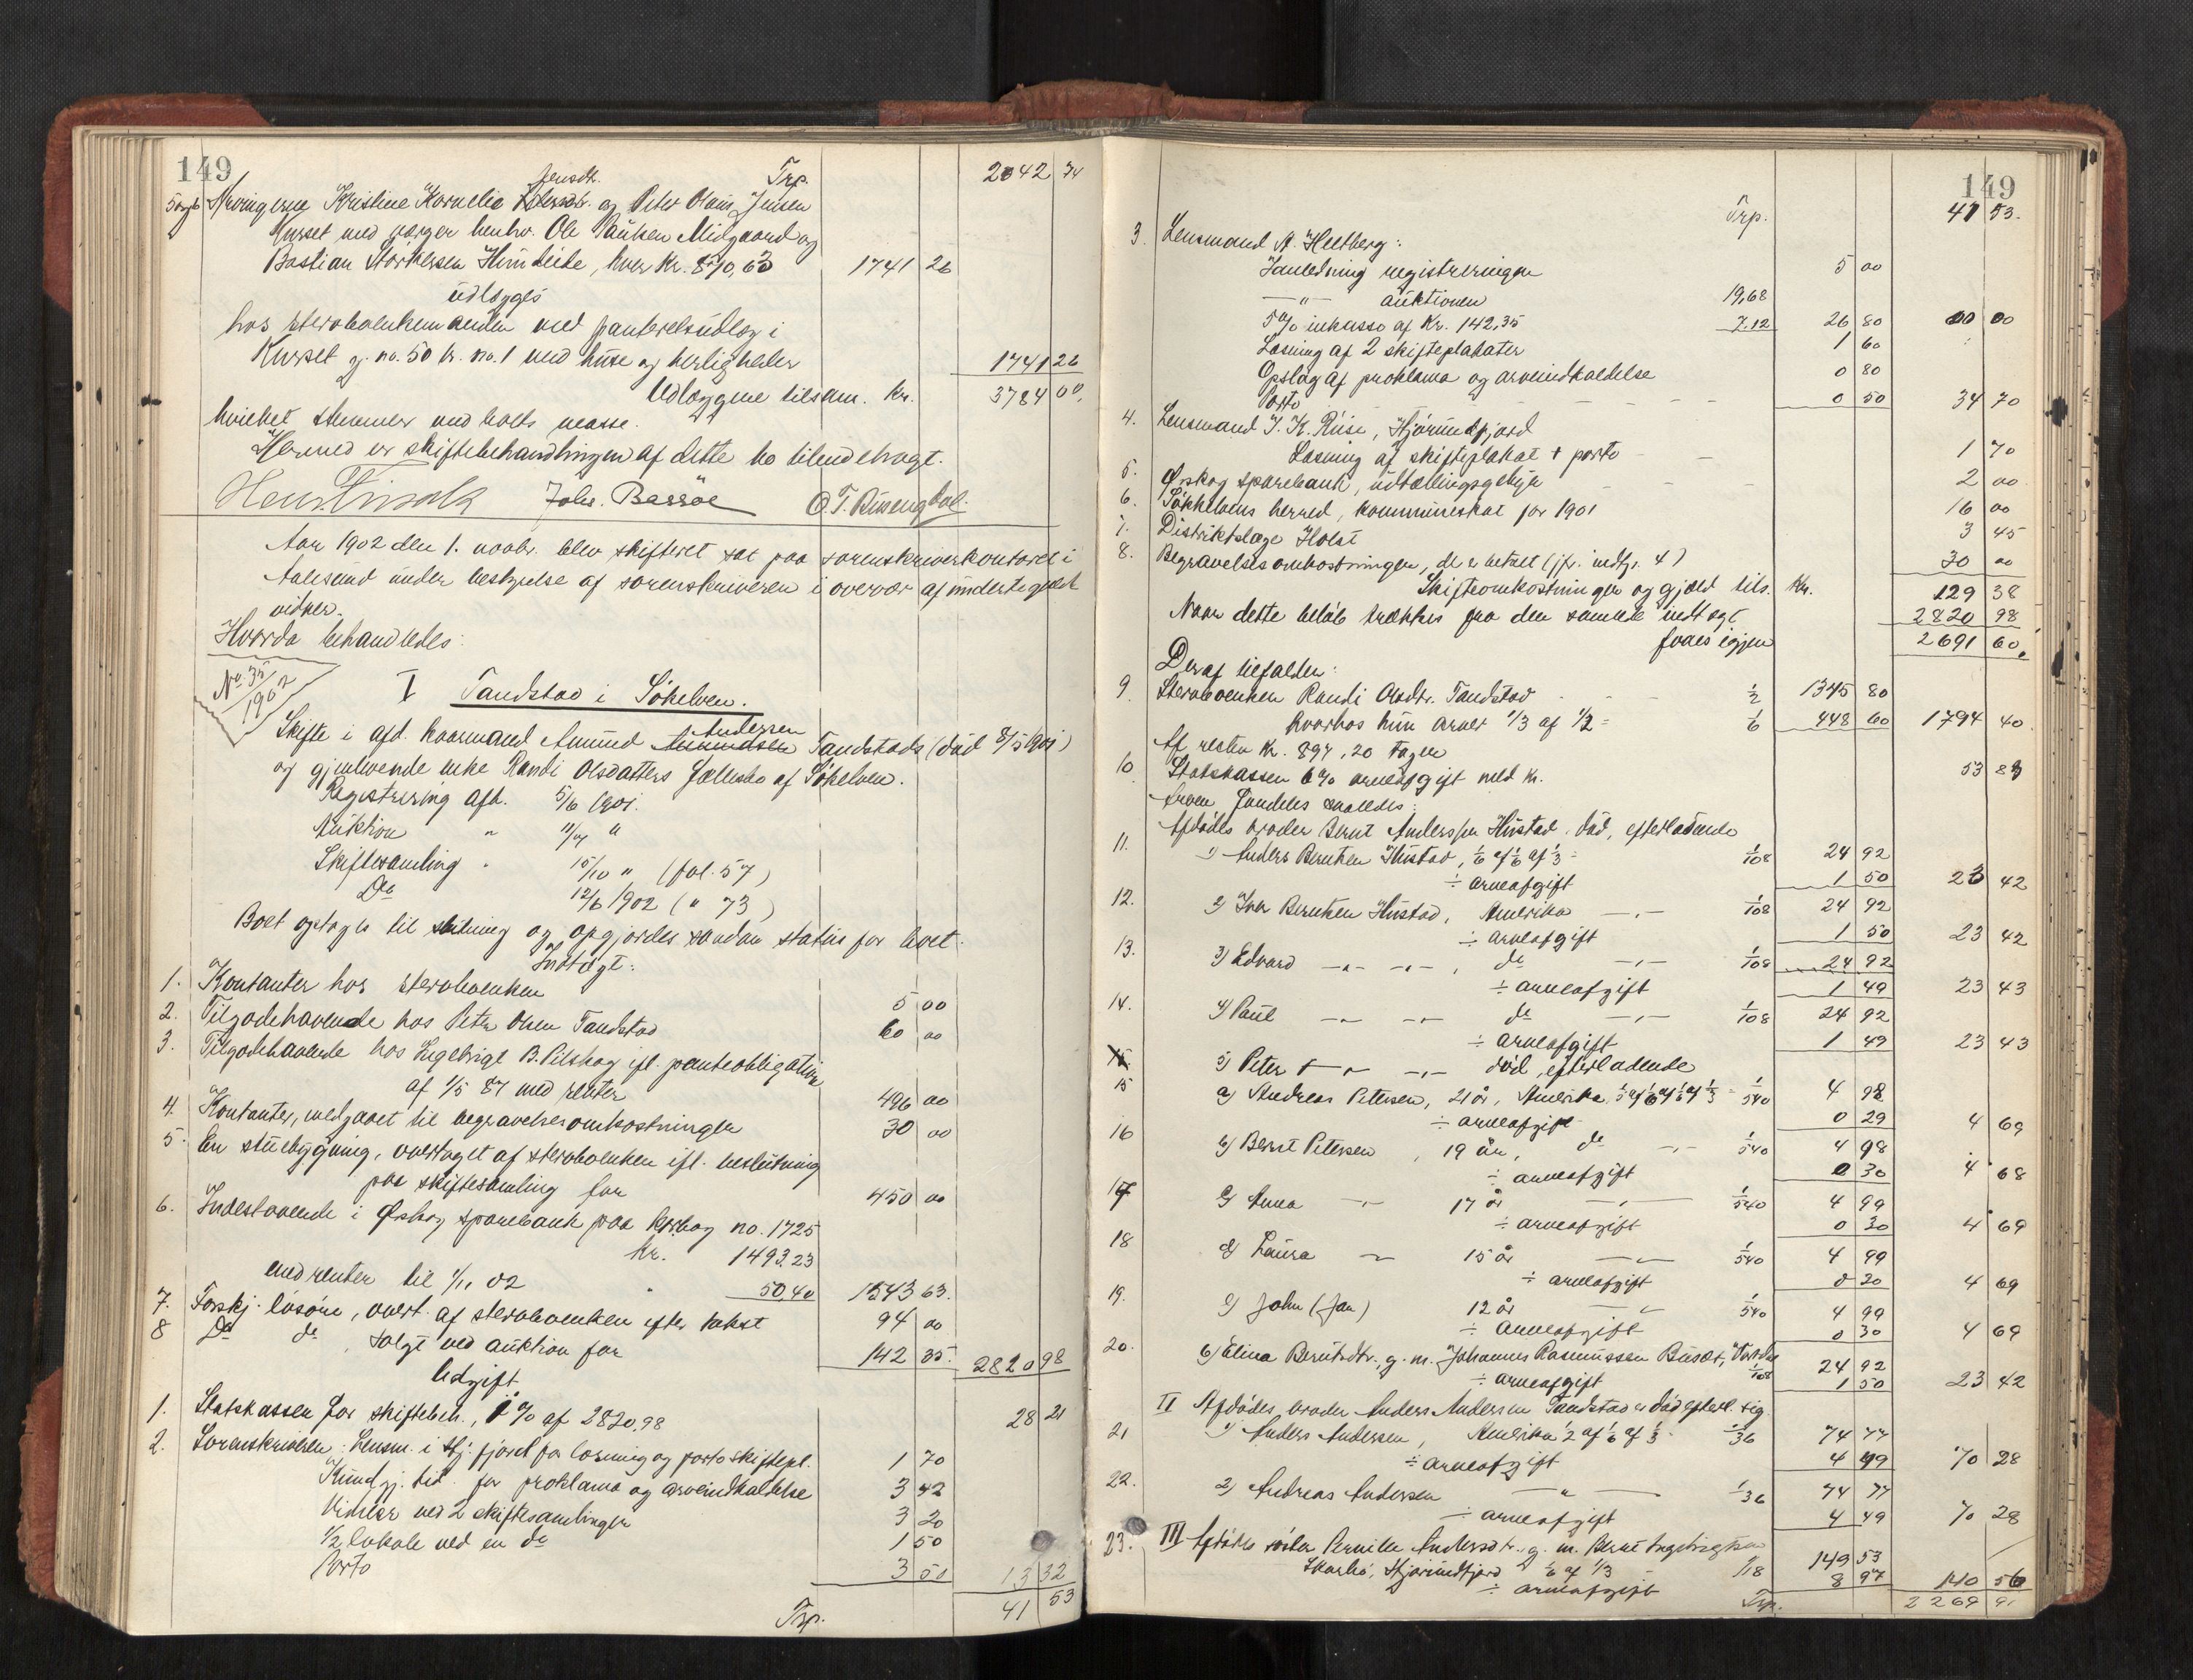 149
Jensdt.
Trp. 2042 74
Arvingerne Kristine Kornelia og Peter Olaus Jensen
Kurset med værger henhv. Ole Paulsen Midgaard og
Bastian Størkersen Humleide, hver kr. 870,63 1741 26
udlægges
hos sterbboenkemanden med panterets udlæg i
Kurset g. no. 50 br. no. 1 med huse og herligheder 1741 26
Udlæggene tilsam. kr. 3784 00.
hvilket stemmer med boets masse.
Hermed er skiftebehandlingen af dette bo tilendebragt.
Johs. Bassøe
Aar 1902 den 1. novbr. blev skifteret sat paa sorenskriverkontoret i
Aalesund under bestyrelse af sorenskriveren i overvær af undertegnede
vidner.
Hvorda behandledes:
No. 35/1902
I Tandstad i Søkelven.
Andersen
Skifte i afd. kaarmand Amund Tandstads (død 8/5 1901)
og gjenlevende enke Randi Olsdatters fællesbo af Søkelven.
Registrering afh. 5/6 1901.
Auktion " 11/7 "
Skiftesamling " 15/10 " (fol. 57)
Do 12/6 1902 ( " 73)
Boet optages til slutning og opgjordes saadan status for boet.
Indtægt:
1. Kontanter hos sterbboenken 5 00
2. Tilgodehavende hos Peter Olsen Tandstad 60 00
3. Tilgodehavende hos Ingebrigt B. Pilskog ifl. panteobligation
af 1/5 87 med renter 496 00
4. Kontanter, medgaaet til begravelsesomkostninger 30 00
5. En stuebygning, overtaget af sterbboenken ifl. beslutning
paa skiftesamling for 450 00
6. Indestaaende i Ørskog sparebank paa bog no. 1725
kr. 1493.23
med renter til 1/11 02 " 50,40 1543 63.
7. Forskj. løsøre, overt. af sterbboenken efter takst 94 00
8 Do do , solgt ved auktion for 142 35. 2820 98
Udgift
1. Statskassen for skiftebeh., 1 % af 2820,98 28 21
2. Sorenskriveren: Lensm. i Hj.fjord for læsning og porto skiftepl. 1 70
Kundgj. tid. for proklama og arveindkaldelse 3 42
Vidner ved 2 skiftesamlinger 3 20
1/2 lokale ved en do 1 50
Porto 3 50 13 32
Trp. 41 53
149
Trp. 41 53.
3. Lensmand A. Heltberg:
I anledning registreringen 5 00
— " — auktionen 19,68
5 % inkasso af kr. 142,35 7.12 26 80 00 00
Læsning af 2 skifteplakater 1 60
Opslag af proklama og arveindkaldelse 0 80
Porto 0 50 34 70
4. Lensmand I. K. Riise, Hjørundfjord
Læsning af skifteplakat + porto 1 70
5. Ørskog sparebank, udtællingsgebyr 2 00
6. Søkkelvens herred, kommuneskat for 1901 16 00
7. Distriktslæge Holst 3 45
8. Begravelsesomkostninger, der er betalt (jfr. indtgt. 4) 30 00
Skifteomkostninger og gjæld tils. Kr. 129 38
Naar dette beløb trækkes fra den samlede indtægt 2820 98
faaes igjen 2691 60.
Deraf tilfalder:
9 Sterbboenken Randi Olsdtr. Tandstad 1/2 1345 80
hvorhos hun arver 1/3 af 1/2 = 1/6 448 60 1794 40
Af resten kr. 897,20 tager
10 Statskassen 6 % arveafgift med kr. 53 83
Arven fordeles saaledes:
Afdødes broder Bernt Andersen Hustad, død, efterladende
11. 1) Anders Berntsen Hustad, 1/6 af 1/6 af 1/3 = 1/108 24 92
÷ arveafgift 1 50 23 42
12. 2) Iver Berntsen Hustad, Amerika — " — 1/108 24 92
÷ arveafgift 1 50 23 42
13. 3) Edvard — " — — " — , do — " — 1/108 24 92
÷ arveafgift 1 49 23 43
14. 4) Paul — " — — " — do — " — 1/108 24 92
÷ arveafgift 1 49 23 43
5) Peter — " — — " — død, efterladende
15 a) Andreas Petersen, 21 år, Amerika. 1/5 af 1/6 af 1/6 af 1/3 = 1/540 4 98
÷ arveafgift 0 29 4 69
16 b) Bernt Petersen , 19 år, do — " — 1/540 4 98
÷ arveafgift 0 30 4 68
17 c) Anna — " — 17 år — " — 1/540 4 99
÷ arveafgift 0 30 4 69
18 d) Laura — " — 15 år — " — 1/540 4 99
÷ arveafgift 0 30 4 69
19. e) John (Jan) 12 år — " — 1/540 4 99
÷ arveafgift 0 30 4 69
20. 6) Elina Berntsdtr., g. m. Johannes Rasmussen 1/108 24 92
÷ arveafgift 1 50 23 42
II Afdødes broder Anders Andersen Tandstad er død efterl. sig
21 1) Anders Andersen, Amerika 1/2 af 1/6 af 1/3 = 1/36 74 77
÷ arveafgift 4 49 70 28
22. 2) Andreas Andersen — " — 1/36 74 77
÷ arveafgift 4 49 70 28
23. III Afdødes søster Pernille Andersdtr., g. m. Bernt Ingebrigtsen
Skarbø, Hjørundfjord 1/6 af 1/3 1/18 149 53
÷ arveafgift 8 97 140 56
Trp. 2269 91